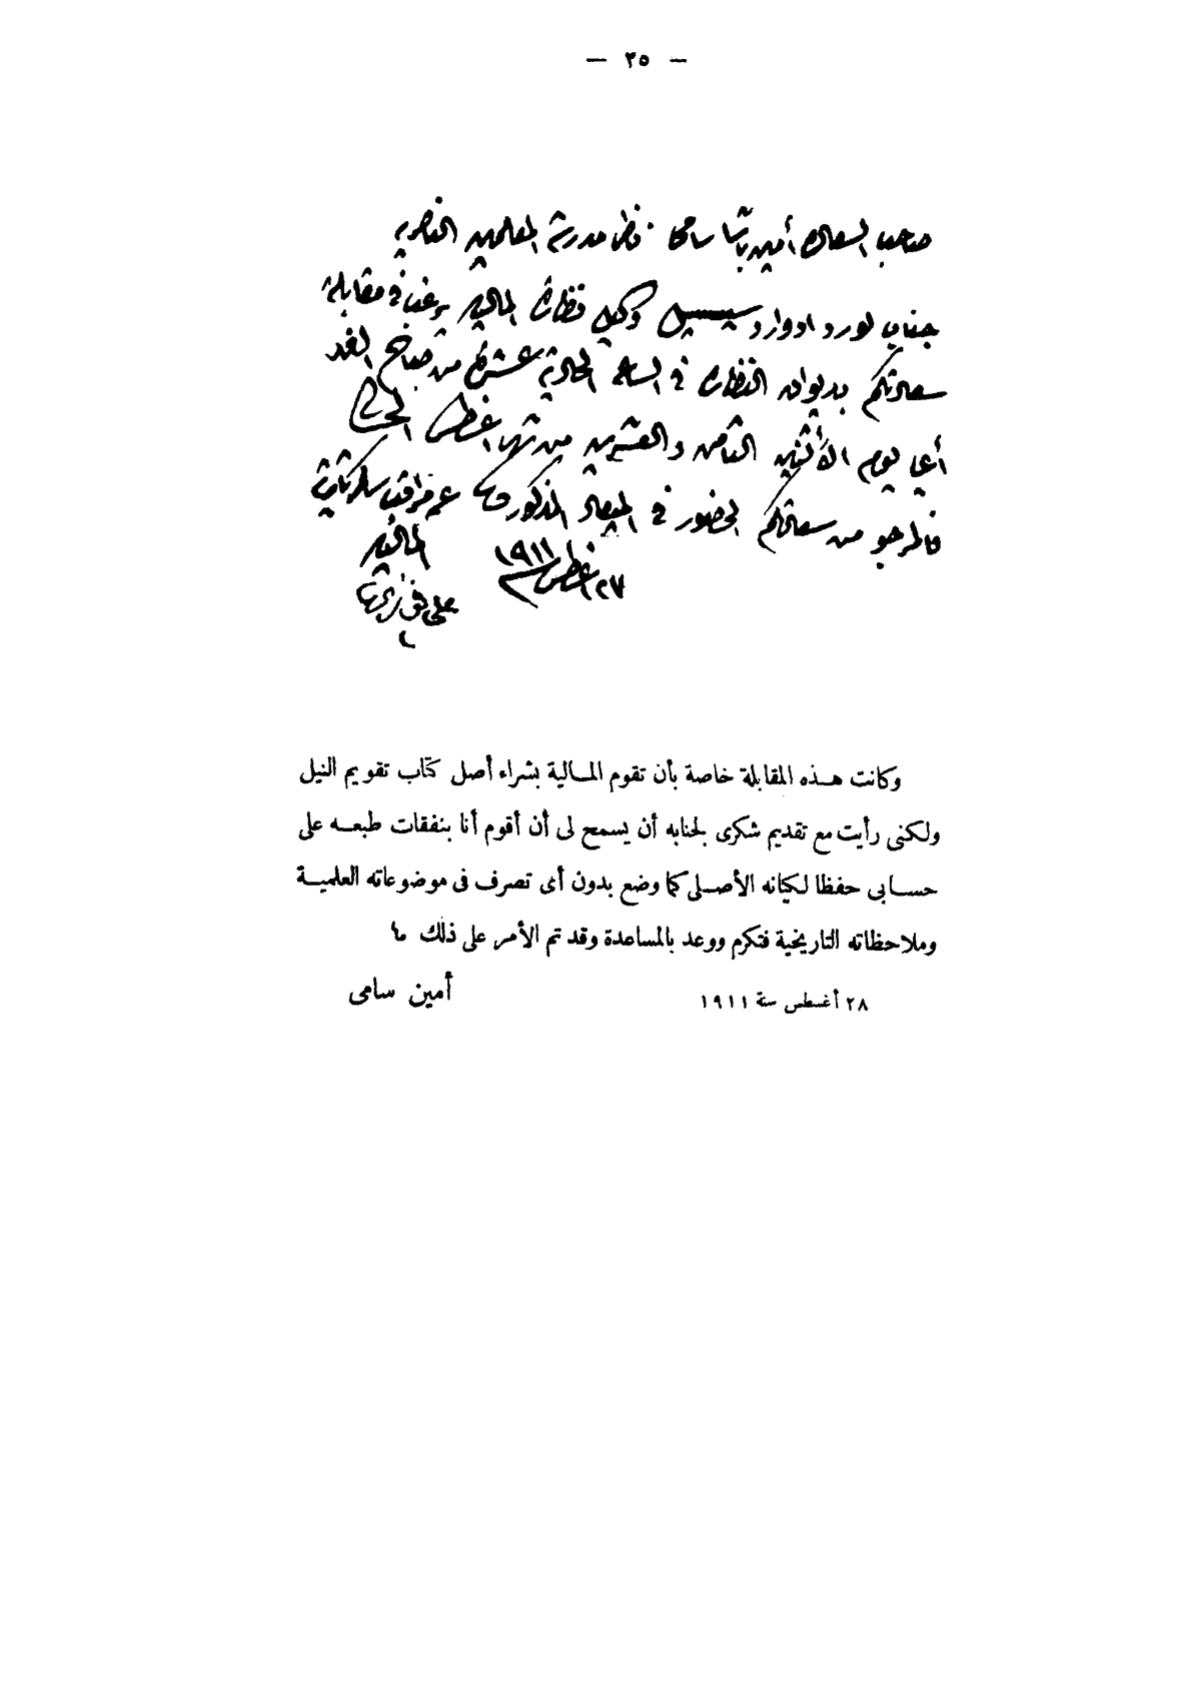 — ٢٥ —
صاحب السعادة أمين باشا سامى ناظر مدرسة المعلمين الناصرية
جناب لورد ادوارد سيسيل وكيل نظارة المالية يرغب فى مقابلة
سعادتكم بديوان النظارة فى الساعة الحادية عشرة من صباح الغد
أعنى يوم الأثنين الثامن والعشرين من شهر اغسطس الحالى
فالمرجو من سعادتكم الحضور فى الميعاد المذكور عن مراقب سكرتارية
المالية
٢٧ اغسطس ١٩١١
على
وكانت هـذه المقابلة خاصة بأن تقوم المـالية بشراء أصل كتاب تقويم النيل
ولكنى رأيت مع تقديم شكرى لجنابه أن يسمح لى أن أقوم أنا بنفقات طبعـه على
حسـابى حفظا لكيانه الأصـلى كما وضع بدون أى تصرف فى موضوعاته العلميـة
وملاحظاته التاريخية فتكرم ووعد بالمساعدة وقد تم الأمر على ذلك
٢٨ أغسطس سنة ١٩١١ أمين سامى